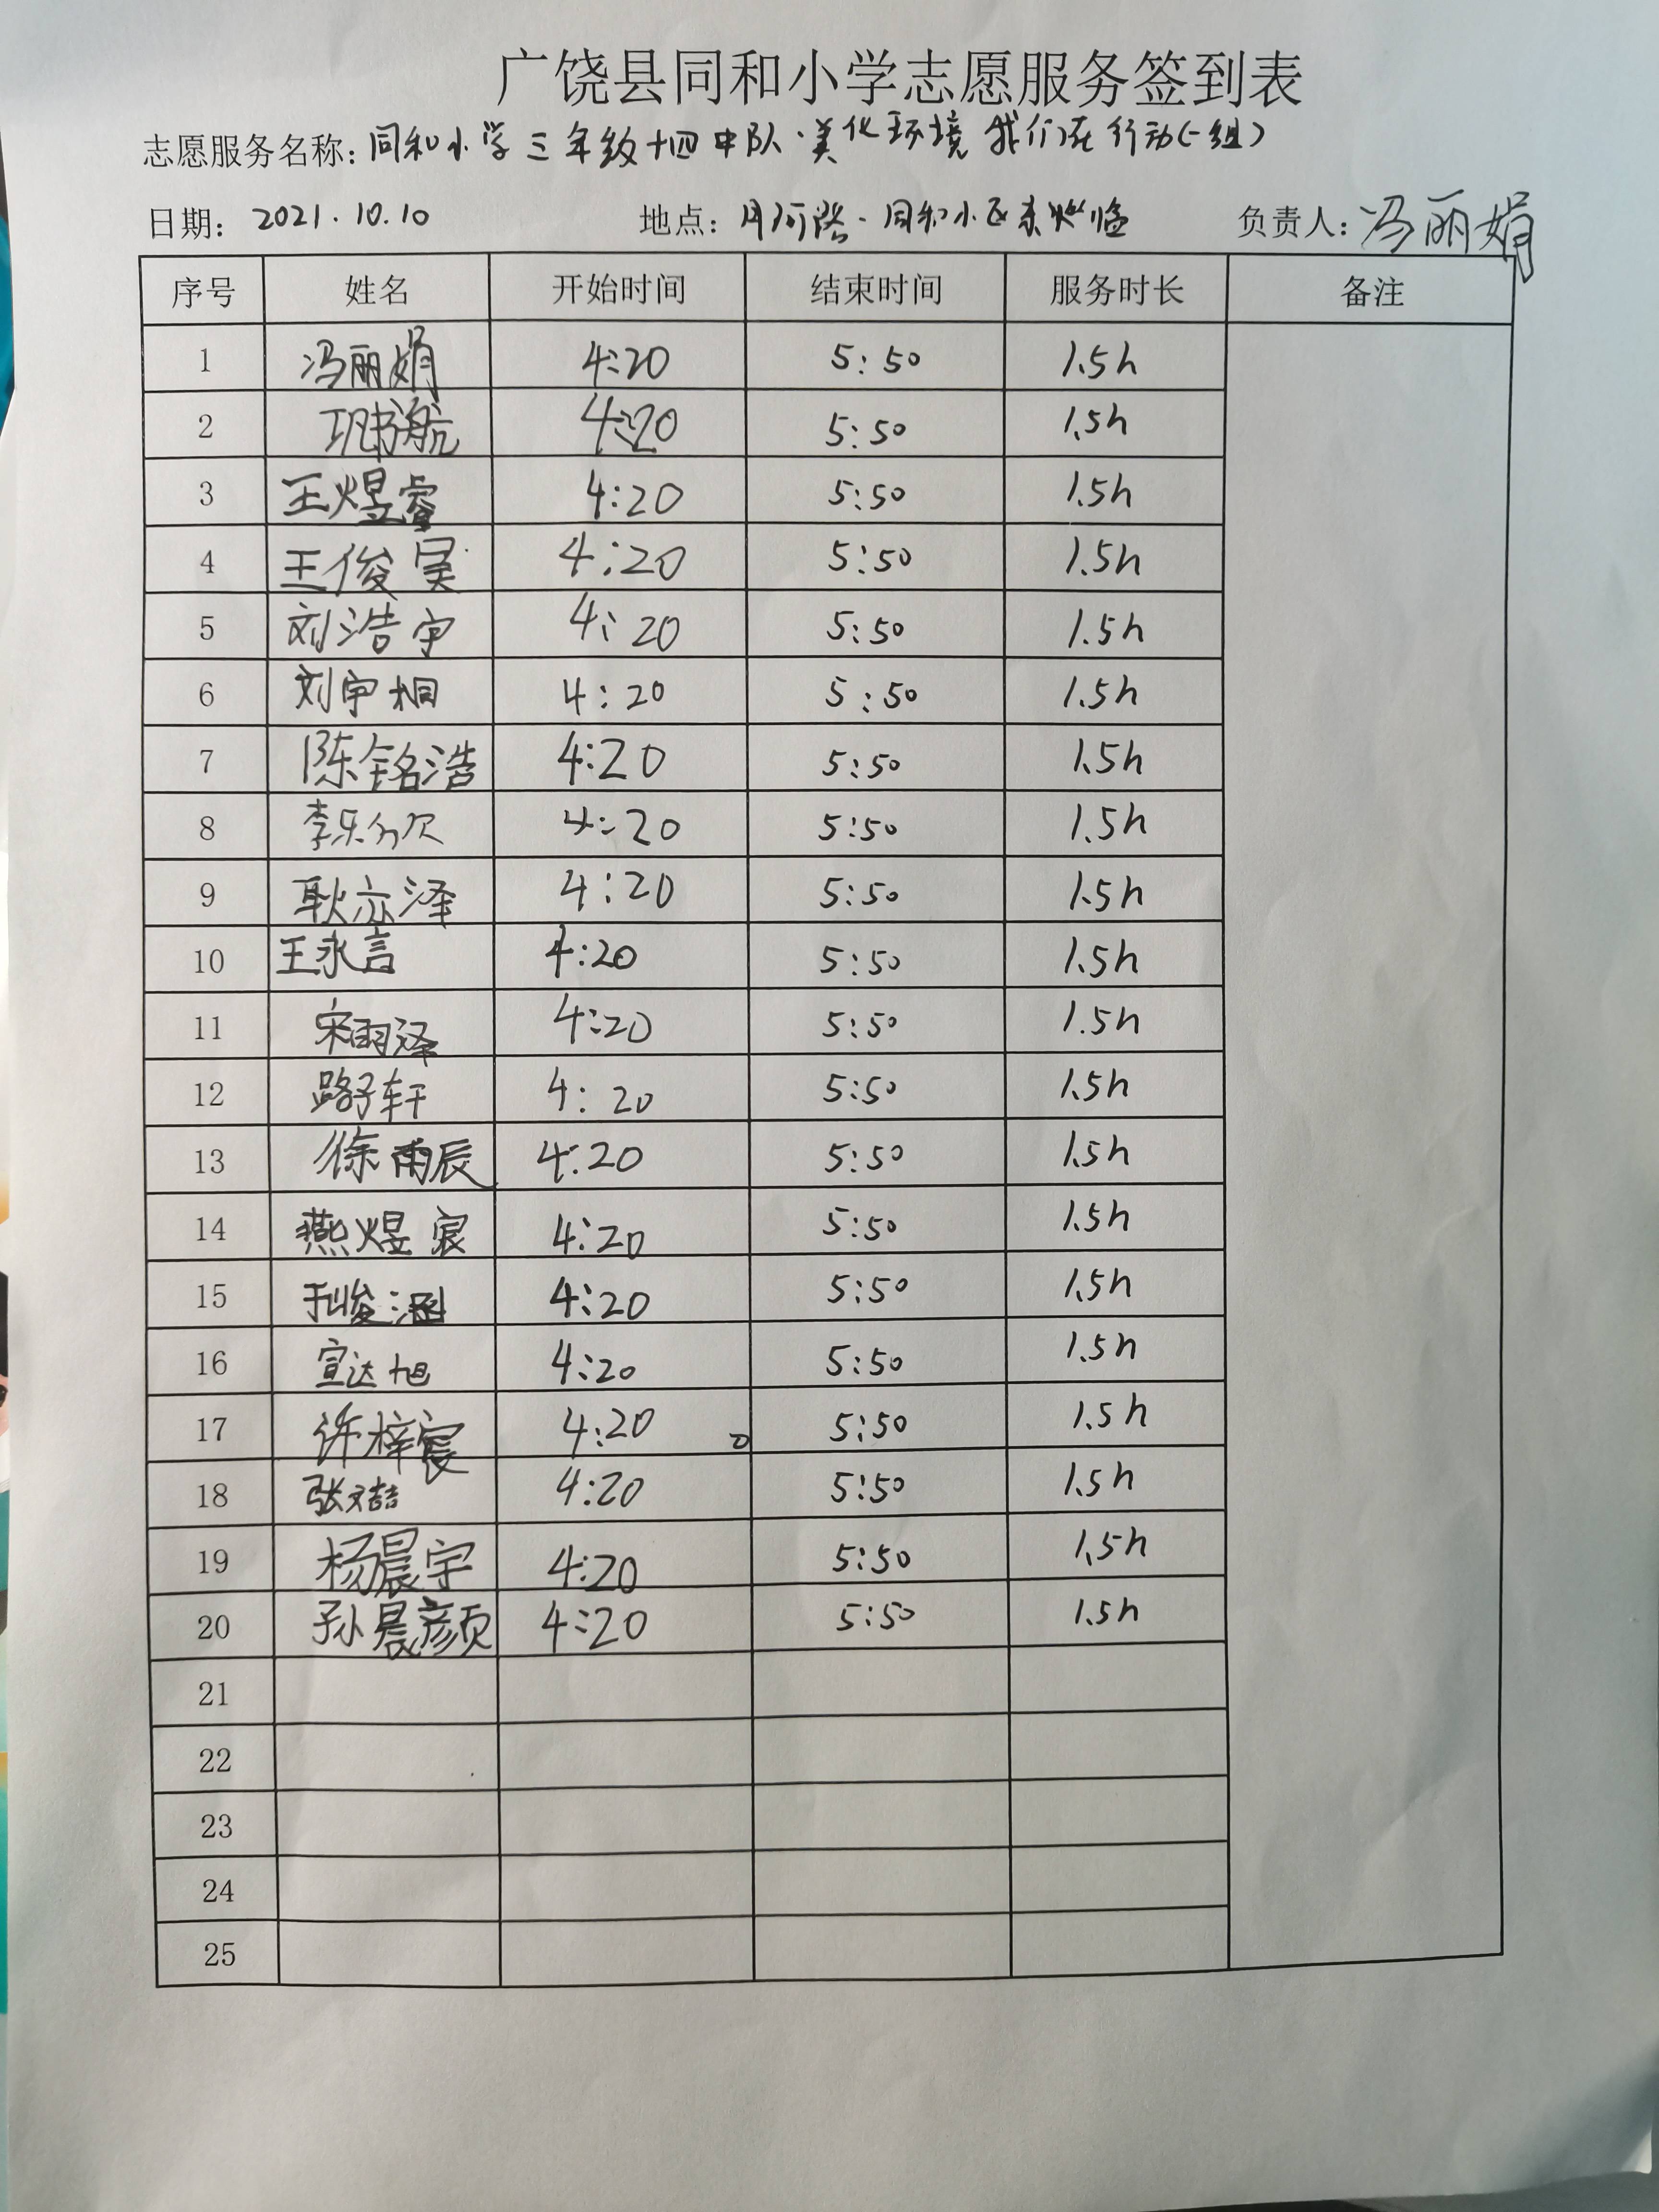 广饶县同和小学志愿服务签到表
志愿服务名称：同和小学三年级十四中队·美化环境 我们在行动(一组)
日期：2021.10.10 地点：月河路·同和小区东 负责人：冯丽娟
序号 姓名 开始时间 结束时间 服务时长 备注
1 冯丽娟 4:20 5:50 1.5h
2 4:20 5:50 1.5h
3 王煜睿 4:20 5:50 1.5h
4 王俊昊 4:20 5:50 1.5h
5 刘浩宇 4:20 5:50 1.5h
6 刘宇桐 4:20 5:50 1.5h
7 陈铭浩 4:20 5:50 1.5h
8 4:20 5:50 1.5h
9 耿亦泽 4:20 5:50 1.5h
10 王永言 4:20 5:50 1.5h
11 宋雨泽 4:20 5:50 1.5h
12 路子轩 4:20 5:50 1.5h
13 徐雨辰 4:20 5:50 1.5h
14 燕煜宸 4:20 5:50 1.5h
15 4:20 5:50 1.5h
16 宣达旭 4:20 5:50 1.5h
17 许梓宸 4:20 5:50 1.5h
18 张文喆 4:20 5:50 1.5h
19 杨晨宇 4:20 5:50 1.5h
20 孙晨颜 4:20 5:50 1.5h
21
22
23
24
25